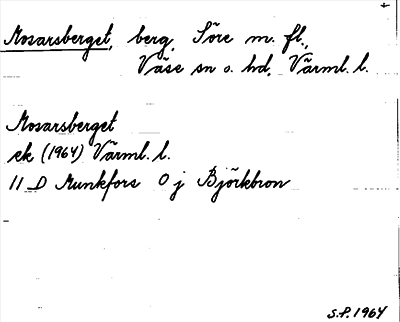 Mosarsberget, berg, Söre m. fl.,
Väse sn o. hd, Värml. l.
Mosarsberget
ek (1964) Värml. l.
11 D Munkfors 0 j Björkbron
S.P. 1964